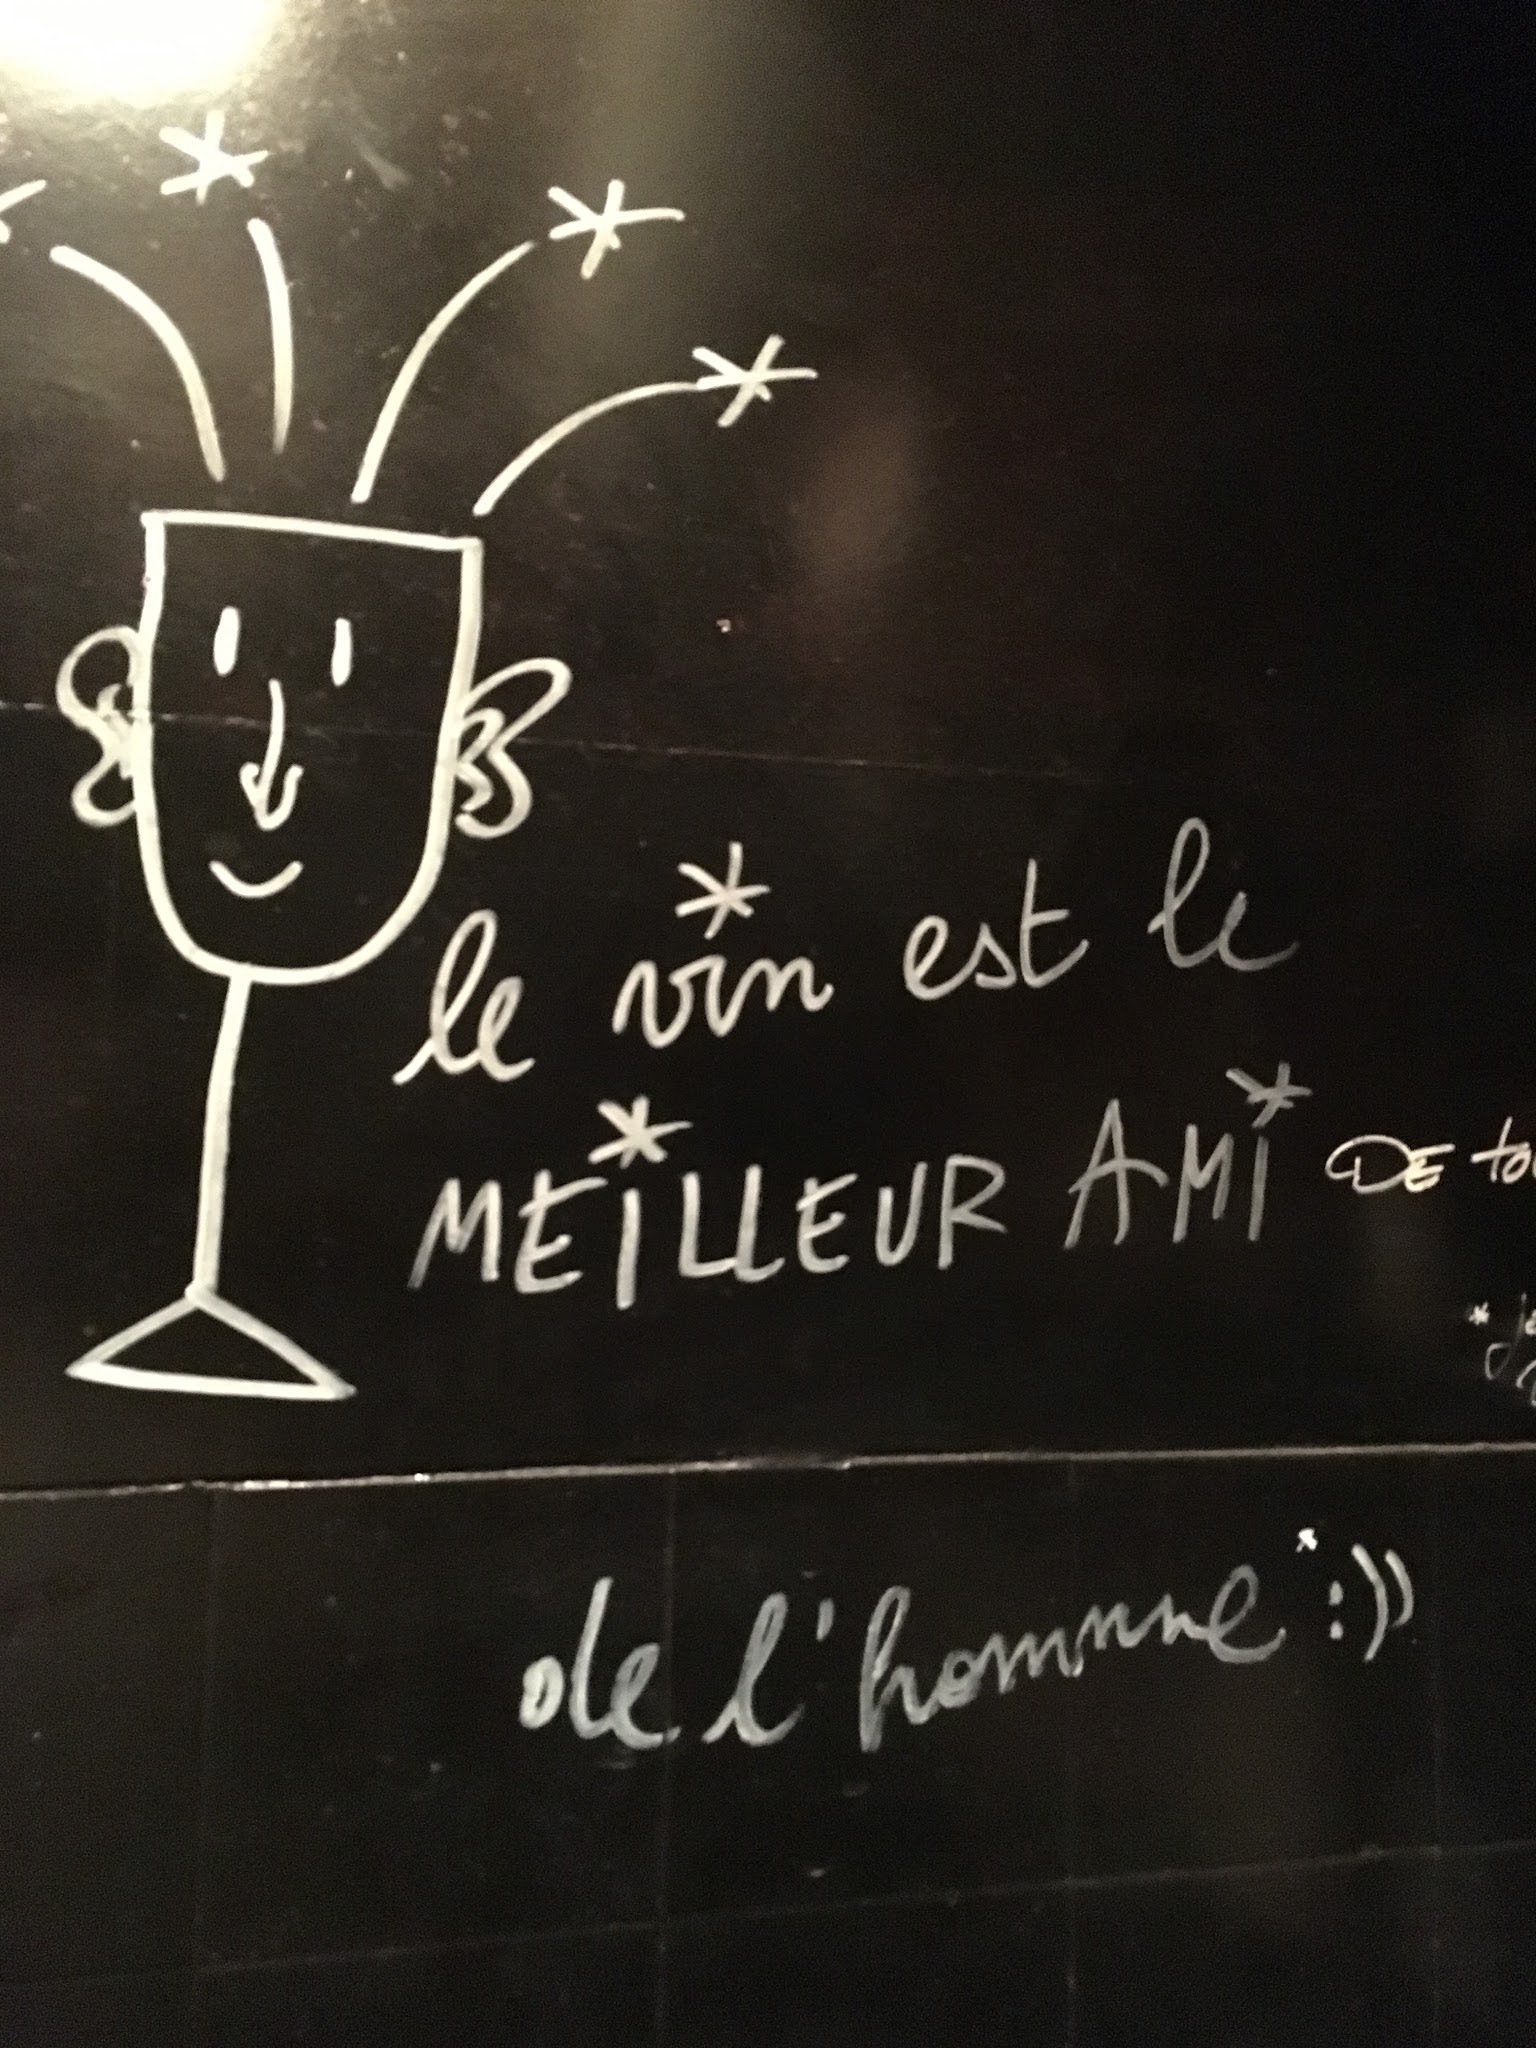 le vin est le
MEILLEUR AMI DE
de l'homme* :))